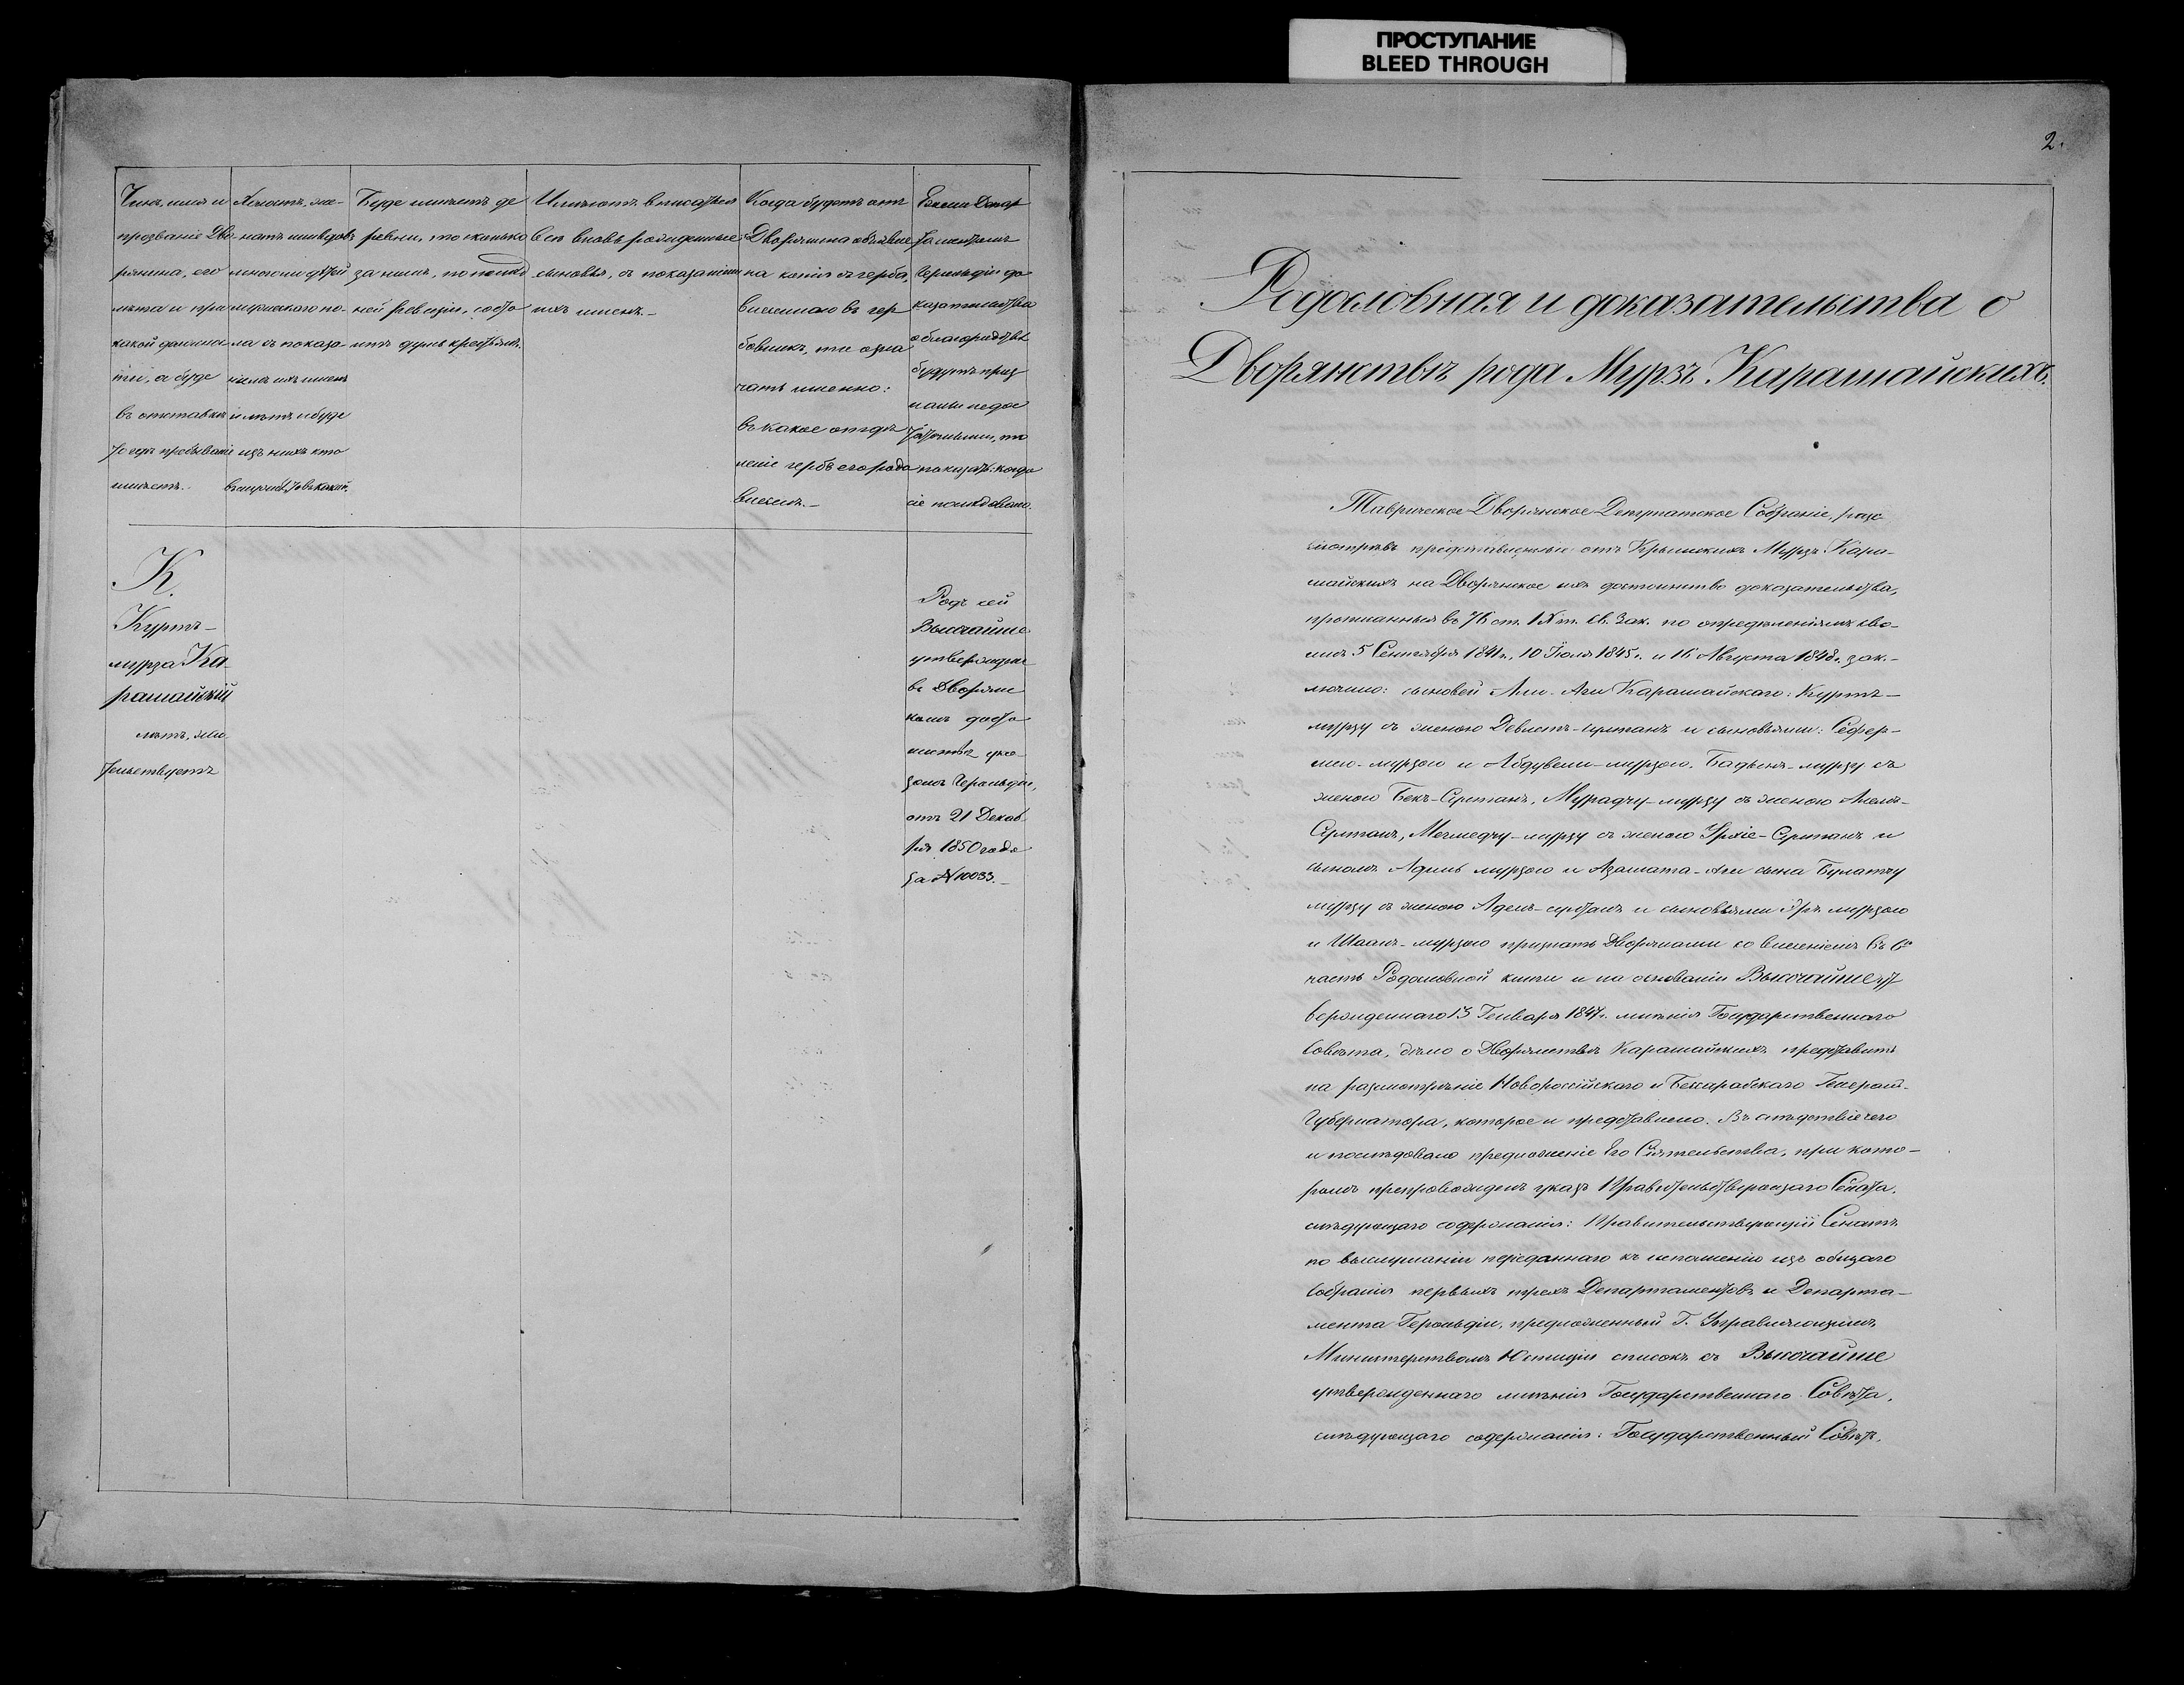 ПРОСТУПАНИЕ
BLEED THROUGH
Чинъ, имя и
прозваніе Дво-
рянина, его
лѣта и при
какой должнос
ти, а буде
въ отставкѣ
то гдѣ пребываніе
имѣетъ.
Холостъ, же-
натъ или вдовъ
многоли дѣтей
мужескаго по-
ла съ показа-
ніемъ ихъ именъ
и лѣтъ и буде
изъ нихъ кто
въ службѣ, то въ какой.
Буде имѣетъ де
ревни, то сколько
за нимъ, по послѣд
ней ревизіи, состо
итъ душъ крестьянъ.
Имѣютъ вписаться
всѣ вновь рожденные
сыновья, съ показаніемъ
ихъ именъ.-
Когда будетъ отъ
Дворянина объявле
на копія съ герба,
внесеннаго въ гер
бовникъ, то озна
чать именно:
въ какое отдѣ
леніе гербъ его рода
внесенъ.-
Ежели Депар
таментомъ
Герольдіи до
казательства
о благородствѣ
будутъ приз
наны недос
таточными, то
показать: когда
сіе послѣдовало.
К.
Куртъ-
мурза Ка
рашайскій
лѣтъ, жи
тельствуетъ
Родъ сей
Высочайше
утвержденъ
въ Дворян
комъ досто
инствѣ ука
зомъ Герольдіи,
отъ 21 Декаб
ря 1850 года
за № 10033.-
2.
Родословная и доказательства о
Дворянствѣ рода Мурзъ Карашайскихъ.
Таврическое Дворянское Депутатское Собраніе, разс
мотрѣвъ представленныя отъ Крымскихъ Мурзъ Кара-
шайскихъ на Дворянское ихъ достоинство доказательства,
прописанныя въ 76 ст. IX т. Св. Зак. по опредѣленіямъ сво-
имъ 5 Сентября 1841 г., 10 Іюля 1845 г. и 16 Августа 1848 г. зак.-
лючило: сыновей Али-Аги Карашайскаго: Куртъ-
мурзу съ женою Девлетъ-султанъ и сыновьями: Сефер-
ша-мурзою и Абдувели-мурзою. Бадынъ-мурзу съ
женою Бекъ-Султанъ, Мурадчу-мурзу съ женою
Султанъ, Мегмедчу-мурзу съ женою Урхіе-Султанъ и
сыномъ Адиль мурзою и Азамата-Аги сына Булатчу
мурзу съ женою Адель-султанъ и сыновьями мурзою
и Шаанъ-мурзою признать Дворянами со внесеніемъ въ 6ю
часть Родословной книги и на основаніи Высочайше ут
вержденнаго 13 Генваря 1847 г. мнѣнія Государственнаго
Совѣта, дѣло о Дворянствѣ Карашайскихъ представить
на разсмотрѣніе Новороссійскаго и Бессарабскаго Генералъ-
Губернатора, которое и представлено. Въ слѣдствіе чего
и послѣдовало предложеніе Его Сіятельства, при кото-
ромъ препровожденъ указъ Правительствующаго Сената,
слѣдующаго содержанія: Правительствующій Сенатъ
по выслушаніи переданнаго къ исполненію изъ общаго
собранія первыхъ трехъ Департаментовъ и Департа-
мента Герольдіи, предложенный Г. Управляющимъ
Министерствомъ Юстиціи списокъ съ Высочайше
утвержденнаго мнѣнія Государственнаго Совѣта,
слѣдующаго содержанія: Государственный Совѣтъ,